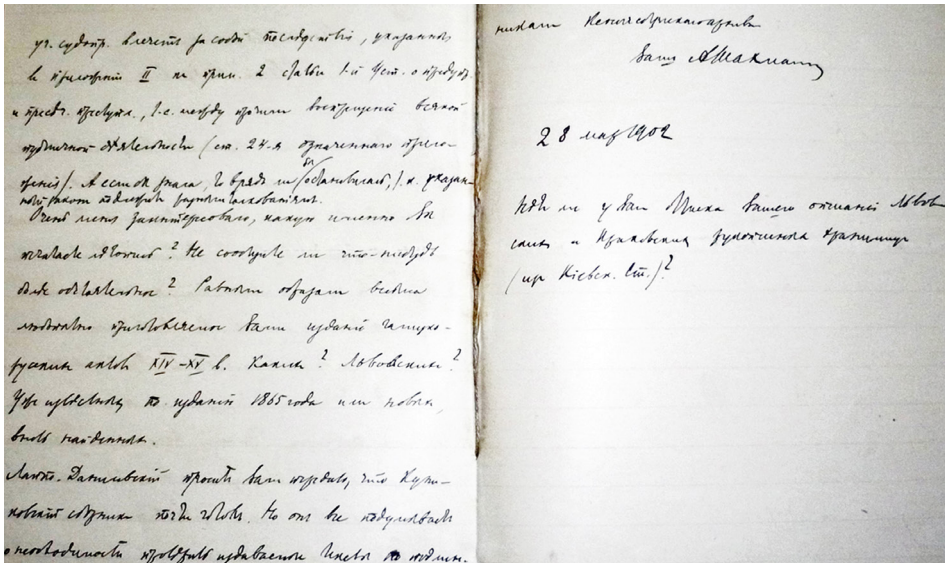 уг. судопр. влечетъ за собой последствiя, указанныя
въ приложенiи II къ прим. 2 статьи 1-й Уст. о предуп.
и пресѣч. преступл., т.е. между прочимъ воспрещенiе всякой
публичной дѣятельности (ст. 24-я означеннаго прило-
женiя). А если онъ знала, то врядъ ли бы остановилась, т. к. указан-
ный
Очень меня заинтересовало, какую именно Вы
начали лѣтопись? Не сообщите ли что-нибудь
болѣе обстоятельное? Равнымъ образомъ весьма
любопытно приготовляемое Вами изданiе галицко-
русскихъ актовъ XIV–XV в. Какихъ? Львовскихъ?
Уже извѣстныхъ по изданiю 1865 года или новыхъ,
вновь найденныхъ.
Лаппо-Данилевскiй проситъ Вамъ передать, что Куни-
ковскiй сборникъ почти готовъ. Но онъ все подумываетъ
о необходимости провѣрить издаваемое Вновь по подлин-
никамъ Кенигсбергскаго архива
Вашъ АШахматовъ
28 мар 1902
Нѣтъ ли у Васъ оттиска Вашего описанiя Львов-
скихъ и Краковскихъ рукописныхъ
(изъ Кiевск. Ст.)?